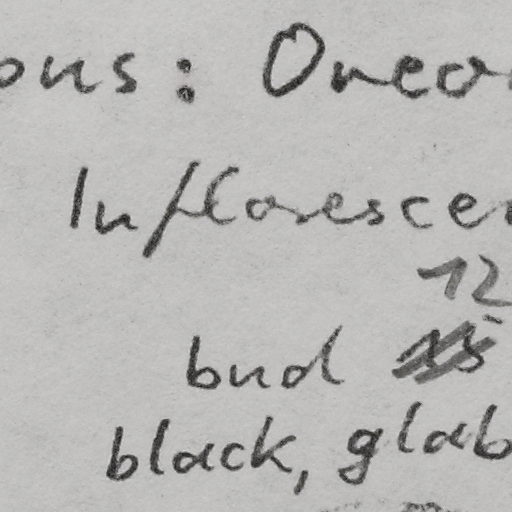 ons: Oreo
Inflorescen
12
bud
black, glab